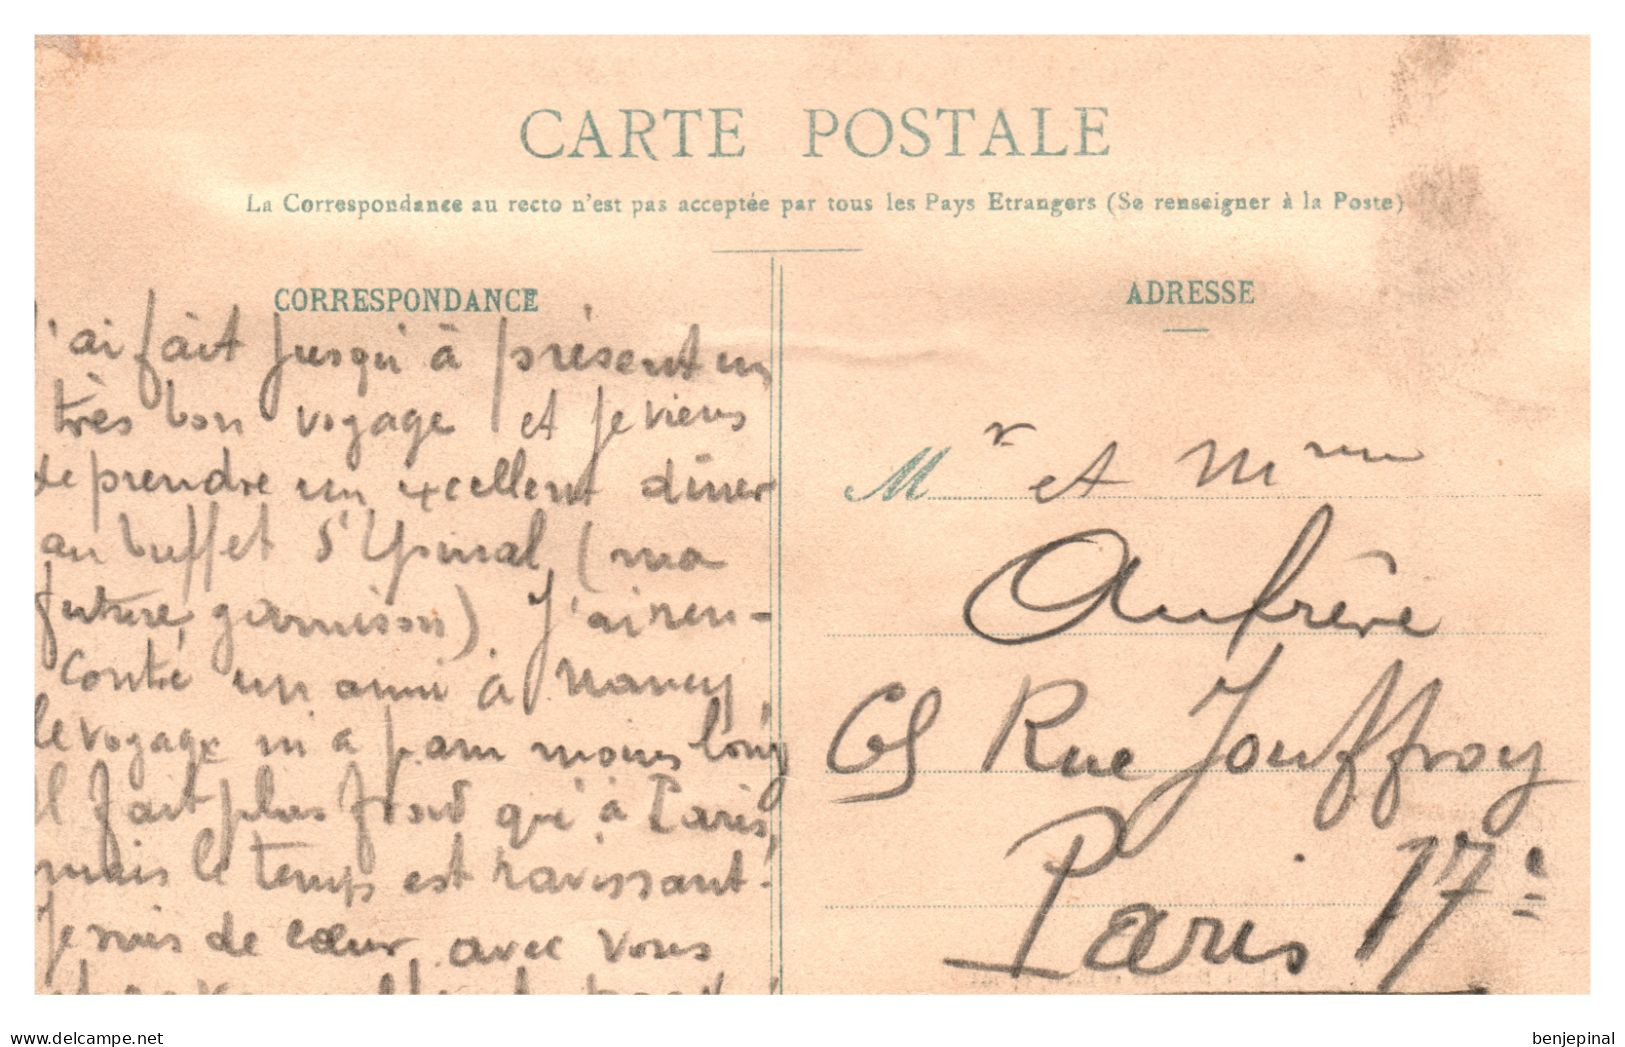 CARTE POSTALE
La Correspondance au recto n'est pas acceptée par tous les Pays Etrangers (Se renseigner à la Poste)
CORRESPONDANCE
J'ai fait jusqu'à présent un
très bon voyage et je viens
de prendre un excellent dîner
au buffet d'Epinal (ma
future garnison) J'ai ren-
contré un ami à Nancy
le voyage m'a paru moins long
Il fait plus froid qu'à Paris,
mais le temps est ravissant.
Je suis de cœur avec vous
ADRESSE
Mr et Mme
Aufrère
65 Rue Jouffroy
Paris 17e
www.delcampe.net
benjepinal